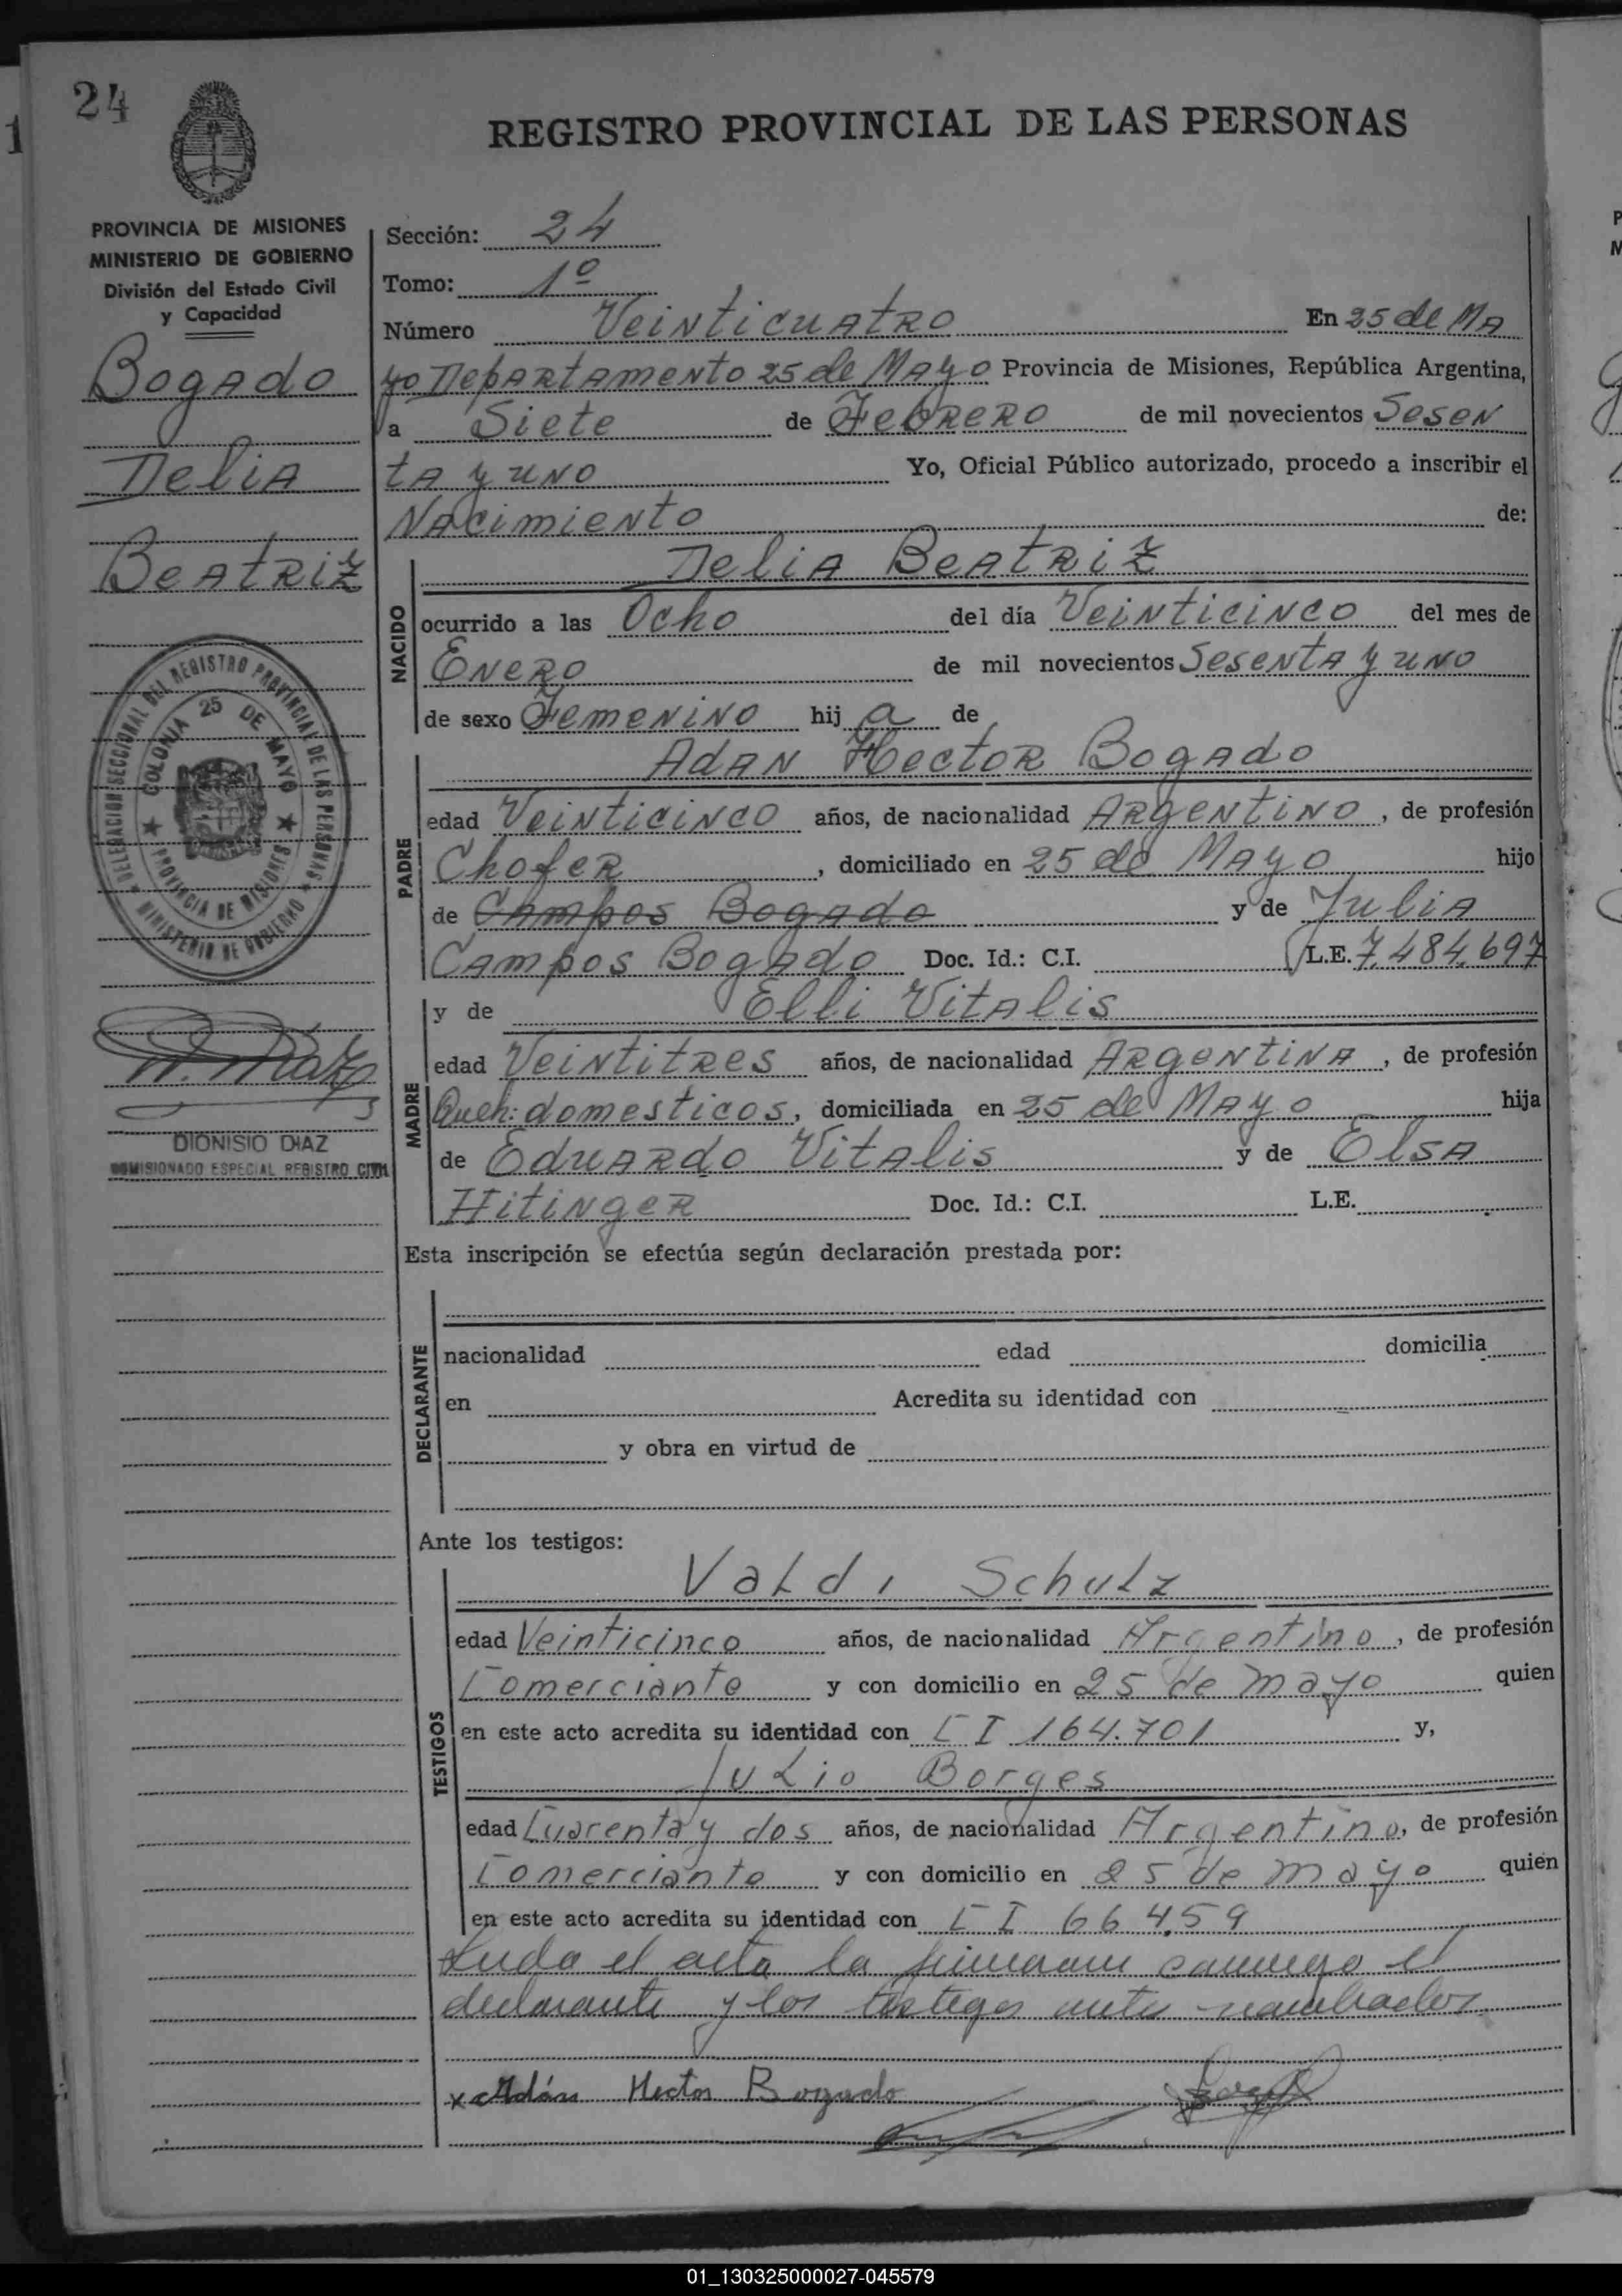 24
REGISTRO PROVINCIAL DE LAS PERSONAS
PROVINCIA DE MISIONES
MINISTERIO DE GOBIERNO
División del Estado Civil
y Capacidad
Bogado
Delia
Beatriz
DELEGACION SECCIONAL DEL REGISTRO PROVINCIAL DE LAS PERSONAS
MINISTERIO DE GOBIERNO
COLONIA 25 DE MAYO
PROVINCIA DE MISIONES
DIONISIO DIAZ
COMISIONADO ESPECIAL REGISTRO CIVIL
Sección: 24
Tomo: 1º
Número Veinticuatro En 25 de Ma
yo Departamento 25 de Mayo Provincia de Misiones, República Argentina,
a Siete de Febrero de mil novecientos Sesen
ta y uno Yo, Oficial Público autorizado, procedo a inscribir el
Nacimiento de:
NACIDO
Delia Beatriz
ocurrido a las Ocho del día Veinticinco del mes de
Enero de mil novecientos Sesenta y uno
de sexo Femenino hij a de
PADRE
Adan Hector Bogado
edad Veinticinco años, de nacionalidad Argentino, de profesión
Chofer, domiciliado en 25 de Mayo hijo
de Campos Bogado y de Julia
Campos Bogado Doc. Id.: C.I. L.E. 7.484.697
MADRE
y de Elli Vitalis
edad Veintitres años, de nacionalidad Argentina, de profesión
Queh: domesticos, domiciliada en 25 de Mayo hija
de Eduardo Vitalis y de Elsa
Hitinger Doc. Id.: C.I. L.E.
Esta inscripción se efectúa según declaración prestada por:
DECLARANTE
nacionalidad edad domicilia
en Acredita su identidad con
y obra en virtud de
Ante los testigos:
TESTIGOS
Valdi Schulz
edad Veinticinco años, de nacionalidad Argentino, de profesión
Comerciante y con domicilio en 25 de mayo quien
en este acto acredita su identidad con C I 164.701 y,
Julio Borges
edad Cuarenta y dos años, de nacionalidad Argentino, de profesión
Comerciante y con domicilio en 25 de mayo quien
en este acto acredita su identidad con C I 66459
Leida el acta la firmaron conmigo el
declarante y los testigos antes nombrados
x Adán Hector Bogado
01_130325000027-045579